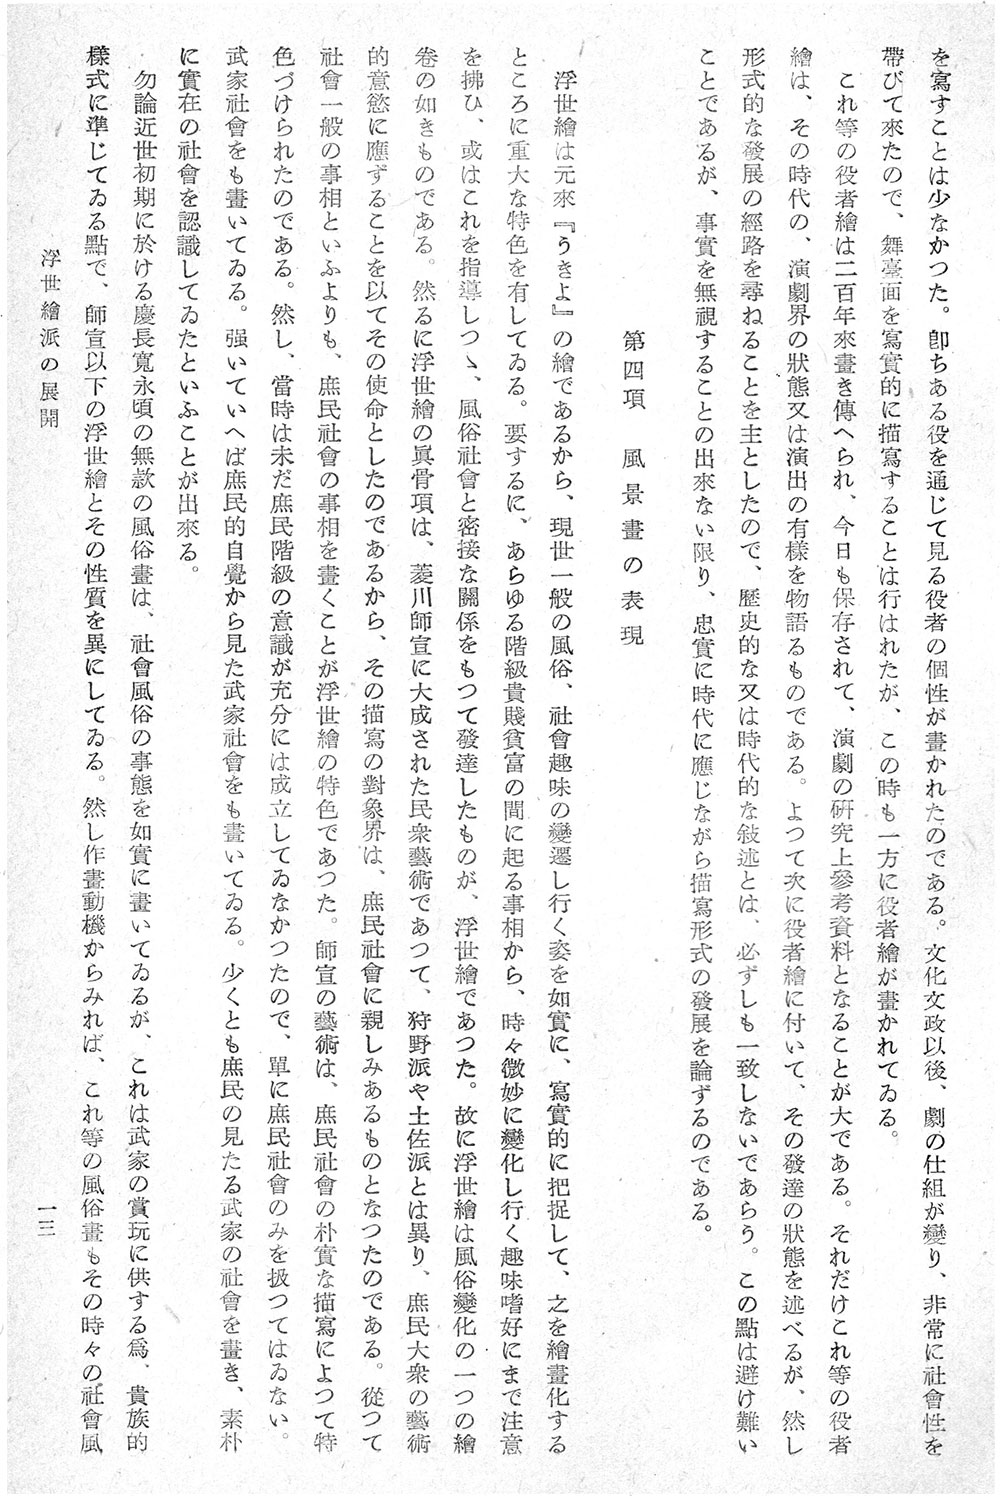 を寫すことは少なかつた。卽ちある役を通じて見る役者の個性が畫かれたのである。文化文政以後、劇の仕組が變り、非常に社會性を
帶びて來たので、舞臺面を寫實的に描寫することは行はれたが、この時も一方に役者繪が畫かれてゐる。
これ等の役者繪は二百年來畫き傳へられ、今日も保存されて、演劇の硏究上參考資料となることが大である。それだけこれ等の役者
繪は、その時代の、演劇界の狀態又は演出の有樣を物語るものである。よつて次に役者繪に付いて、その發達の狀態を述べるが、然し
形式的な發展の經路を尋ねることを主としたので、歷史的な又は時代的な敍述とは、必ずしも一致しないであらう。この點は避け難い
ことであるが、事實を無視することの出來ない限り、忠實に時代に應じながら描寫形式の發展を論ずるのである。
第四項　風景畫の表現
浮世繪は元來『うきよ』の繪であるから、現世一般の風俗、社會趣味の變遷し行く姿を如實に、寫實的に把捉して、之を繪畫化する
ところに重大な特色を有してゐる。要するに、あらゆる階級貴賤貧富の間に起る事相から、時々微妙に變化し行く趣味嗜好にまで注意
を拂ひ、或はこれを指導しつゝ、風俗社會と密接な關係をもつて發達したものが、浮世繪であつた。故に浮世繪は風俗變化の一つの繪
卷の如きものである。然るに浮世繪の眞骨項は、菱川師宣に大成された民衆藝術であつて、狩野派や土佐派とは異り、庶民大衆の藝術
的意慾に應ずることを以てその使命としたのであるから、その描寫の對象界は、庶民社會に親しみあるものとなつたのである。從つて
社會一般の事相といふよりも、庶民社會の事相を畫くことが浮世繪の特色であつた。師宣の藝術は、庶民社會の朴實な描寫によつて特
色づけられたのである。然し、當時は未だ庶民階級の意識が充分には成立してゐなかつたので、單に庶民社會のみを扱つてはゐない。
武家社會をも畫いてゐる。强いていへば庶民的自覺から見た武家社會をも畫いてゐる。少くとも庶民の見たる武家の社會を畫き、素朴
に實在の社會を認識してゐたといふことが出來る。
勿論近世初期に於ける慶長寬永頃の無款の風俗畫は、社會風俗の事態を如實に畫いてゐるが、これは武家の賞玩に供する爲、貴族的
樣式に準じてゐる點で、師宣以下の浮世繪とその性質を異にしてゐる。然し作畫動機からみれば、これ等の風俗畫もその時々の社會風
浮世繪派の展開
一三